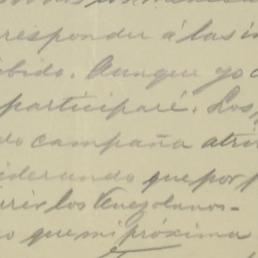 responder á las in
bido. Aunque yo
participaré. Los
do campaña atri
siderando que por p
rrir los Venezolanos-
o que mi próxima